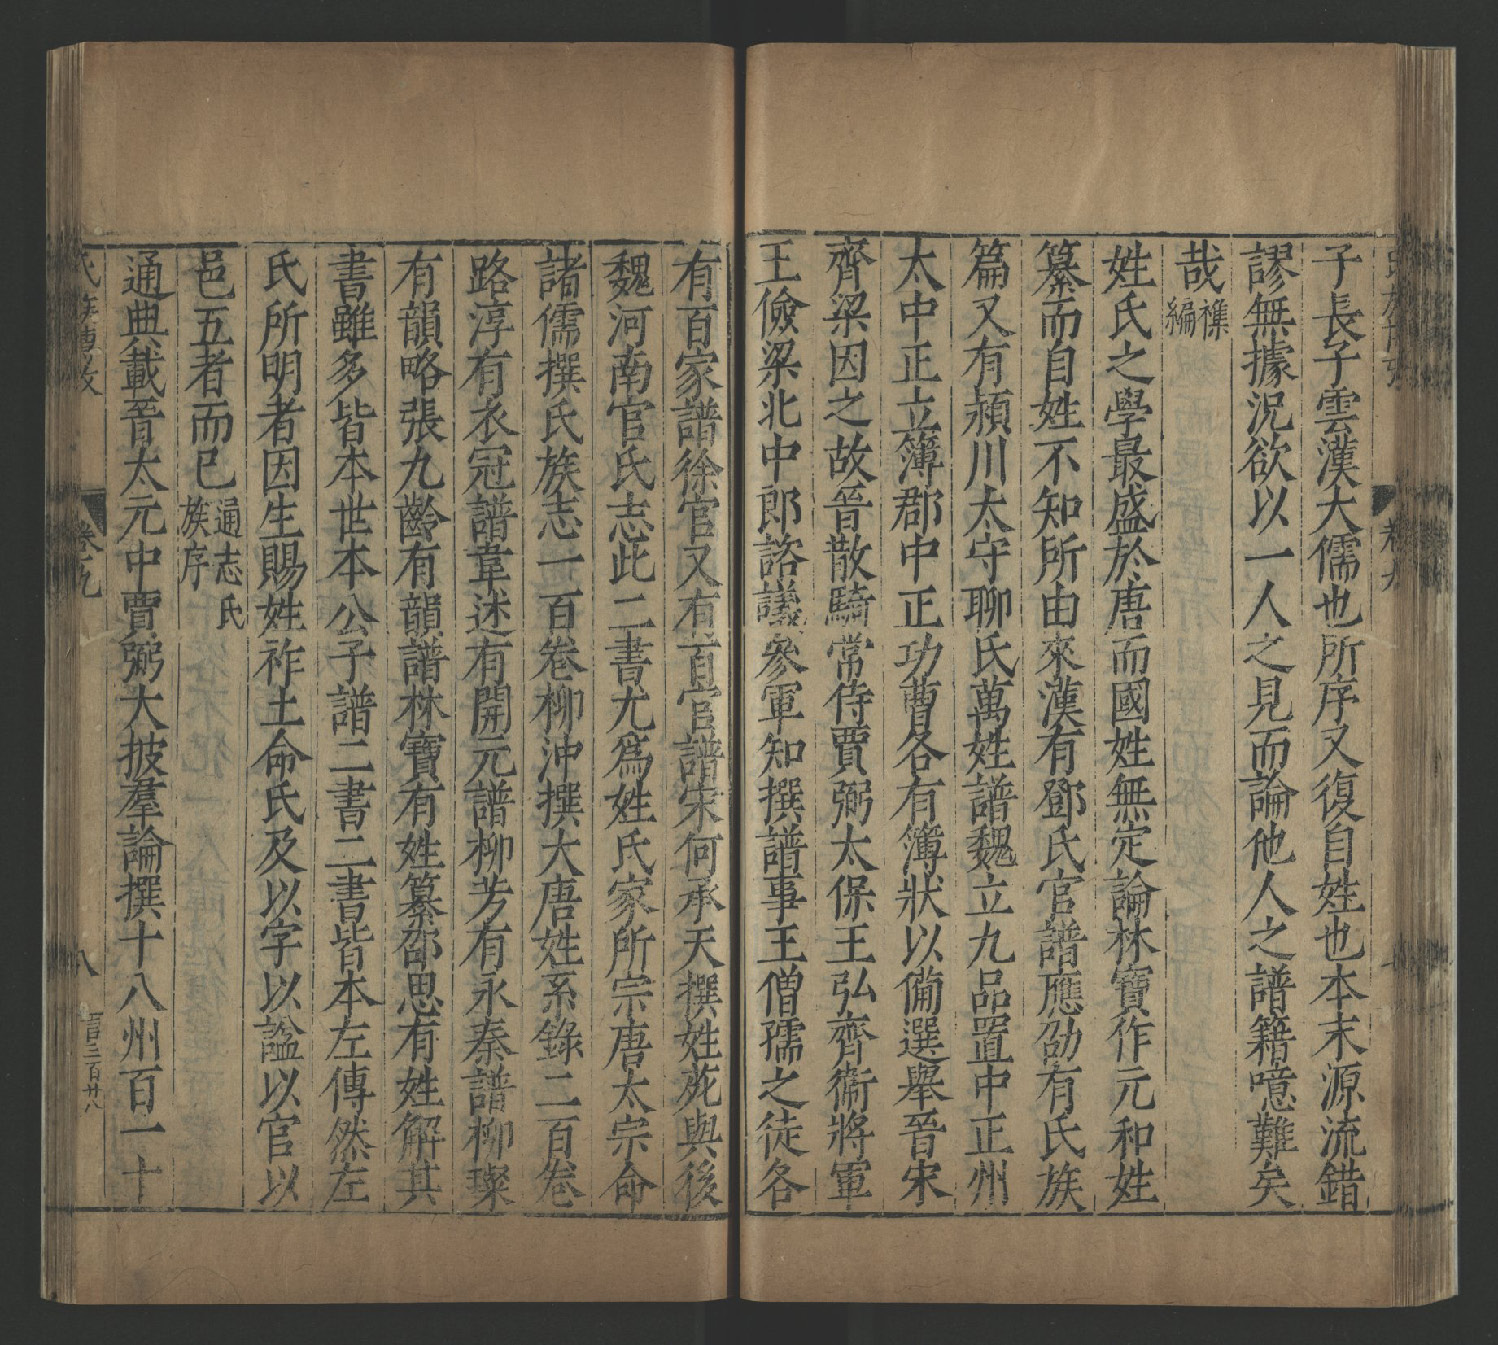 子長子雲漢大儒也所序又復自姓也本末源流錯
謬無據況欲以一人之見而論他人之譜籍噫難矣
哉
襍
編
姓氏之學最盛於唐而國姓無定論林寶作元和姓
纂而自姓不知所由來漢有鄧氏官譜應劭有氏族
篇又有潁川太守聊氏萬姓譜魏立九品置中正州
太中正立簿郡中正功曹各有簿狀以備選舉晉宋
齊梁因之故晉散騎常侍賈弼太保王弘齊衞將軍
王儉梁北中郎諮議參軍知撰譜事王僧孺之徒各
有百家譜徐官又有百官譜宋何承天撰姓苑與後
魏河南官氏志此二書尤爲姓氏家所宗唐太宗命
諸儒撰氏族志一百卷柳沖撰大唐姓系錄二百卷
路淳有衣冠譜韋述有開元譜柳芳有永泰譜柳璨
有韻略張九齡有韻譜林寶有姓纂邵思有姓解其
書雖多皆本世本公子譜二書二書皆本左傳然左
氏所明者因生賜姓祚土命氏及以字以謚以官以
邑五者而已
通志氏
族序
通典載晉太元中賈弼大披羣論撰十八州百一十
卷九
八